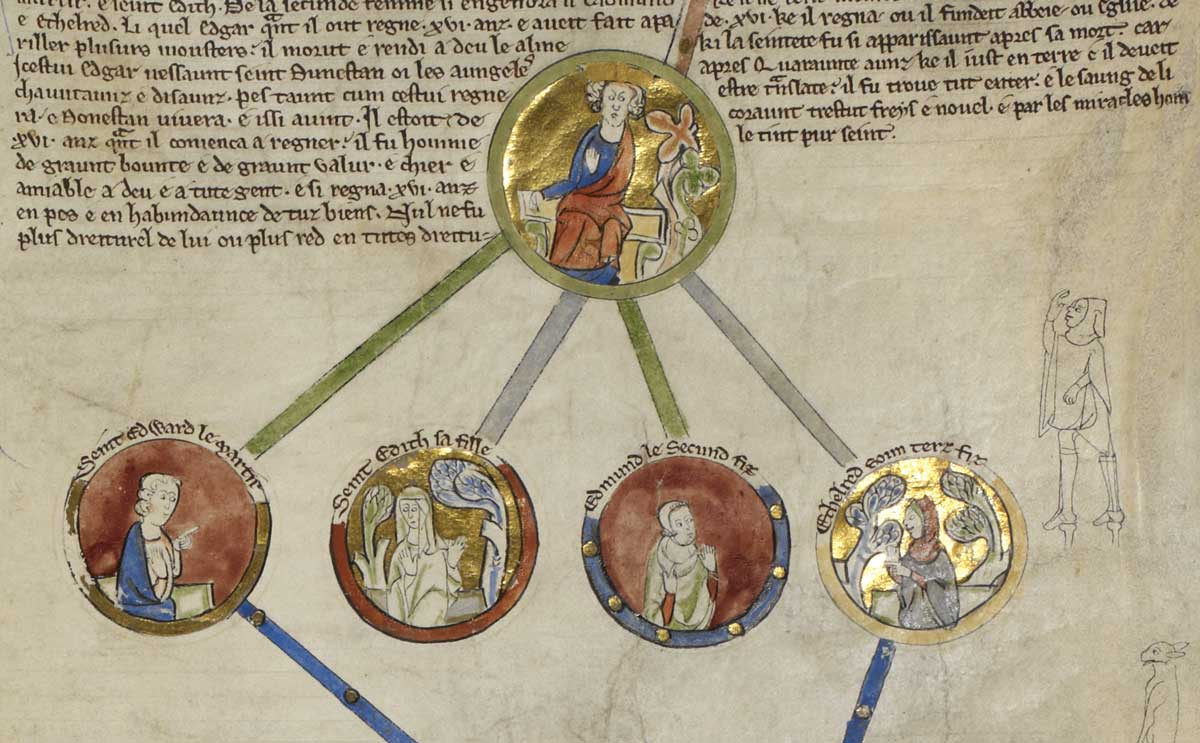 e ieuit Edith. De la secunde femme il engendra il Edmund
e Ethelred. Li quel Edgar qant il out regne .xvi. anz. e aueit fait apa
riller plusurs mousters: il morut e rendi a deu le alme
Icestui Edgar nessaunt seint Dunestan oi les aungeles
chauntaunz e disaunz. Pes taunt cum cestui regne
ra. e Donestan viuera. e issi auint. Il estoit de
xvi. anz qant il comenca a regner: il fu homme
de graunt bounte e de graunt valur. e chier e
amiable a deu e a tute gent. e si regna .xvi. anz
en pes e en habundaunce de tuz biens. Nul ne fu
plus dreiturel de lui ou plus red en tutes dreitu-
de .xvi. ke il regna. ou il fundeit abbeie. ou eglise. de
ki la seintete fu si apparissaunt apres sa mort. car
apres Quaraunte aunz ke il iust en terre e il deueit
estre translate: il fu troue tut enter. e le saung de li
coraunt trestut freys e nouel. e par les miracles hom
le tint pur seint.
Seint Edward le Martir
Seint Edith sa fille
Edmund le Secund fiz
Ethelred soun terz fiz